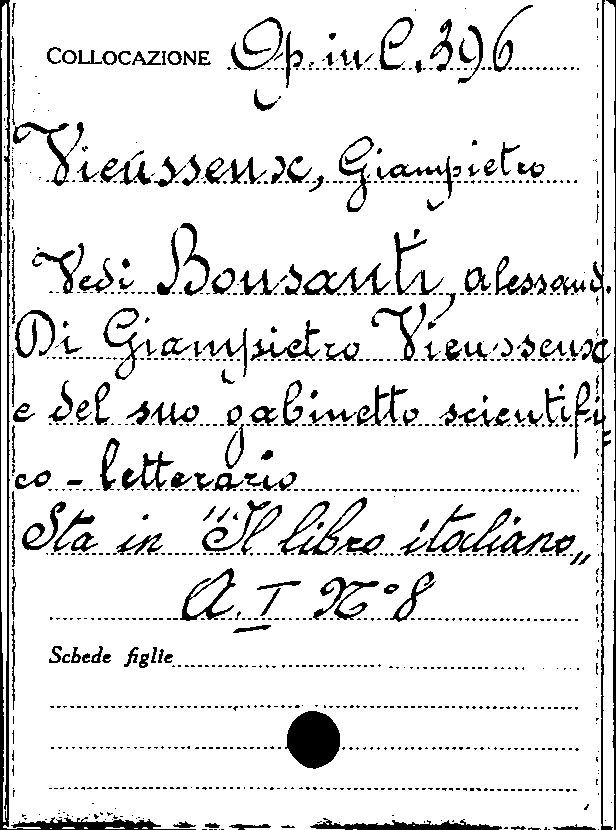 COLLOCAZIONE Op. in C. 396
Vieusseux, Giampietro
Vedi Bonsanti, Alessand.
Di Giampietro Vieusseux
e del suo gabinetto scientifi=
co - letterario
Sta in "Il libro italiano„
A. I N° 8
Schede figlie